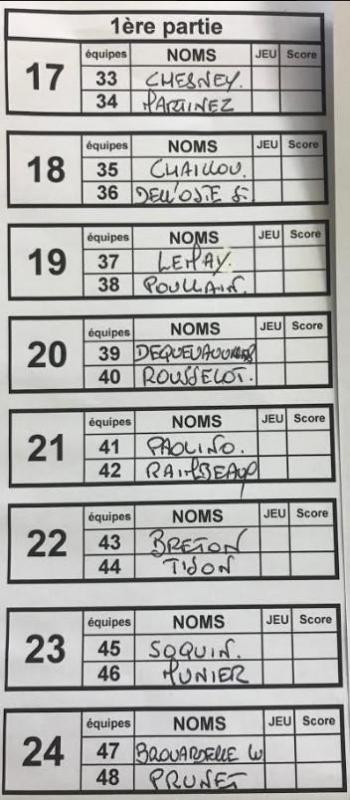 1ère partie
17 équipes NOMS JEU Score
33 CHESNEY.
34 MARTINEZ
18 équipes NOMS JEU Score
35 CHAILLOU.
36 DELL'OSTE S.
19 équipes NOMS JEU Score
37 LEMAY.
38 POULLAIN.
20 équipes NOMS JEU Score
39
40 ROUSSELOT.
21 équipes NOMS JEU Score
41 PAOLINO.
42 RAIMBEAUD
22 équipes NOMS JEU Score
43 BRETON
44 TIJON
23 équipes NOMS JEU Score
45 SOQUIN.
46 MUNIER
24 équipes NOMS JEU Score
47 BROUARDELLE W
48 PRUNET